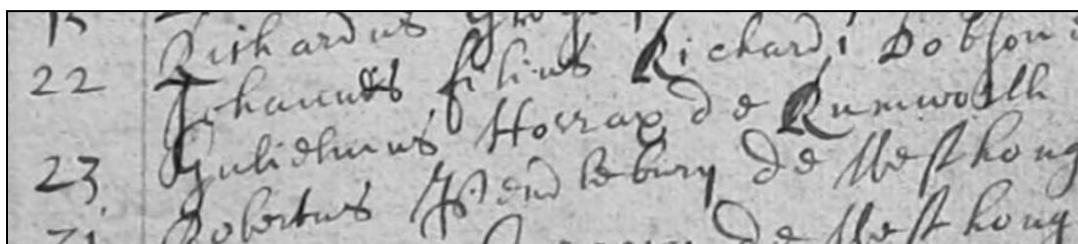 Richardus
22 Johannes filius Richardi Dobson
Gulielmus Horrax de Rumworth
23 Robertus Pendlebury de Westhoug
de Westhoug